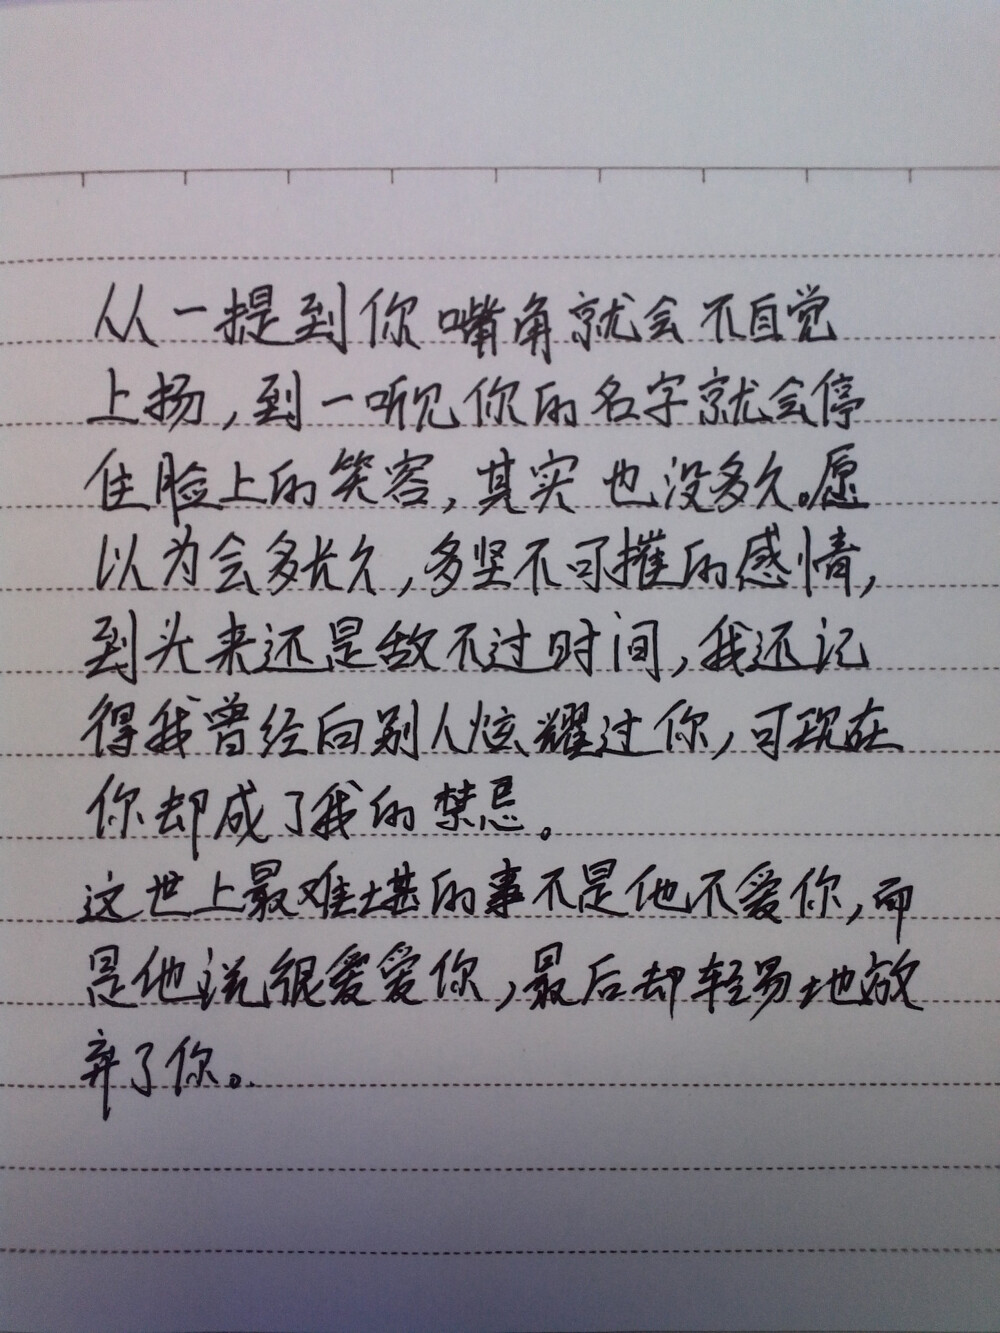 从一提到你嘴角就会不自觉
上扬，到一听见你的名字就会停
住脸上的笑容，其实也没多久。愿
以为会多长久，多坚不可摧的感情，
到头来还是敌不过时间，我还记
得我曾经向别人炫耀过你，可现在
你却成了我的禁忌。
这世上最难堪的事不是他不爱你，而
是他说很爱爱你，最后却轻易地放
弃了你。